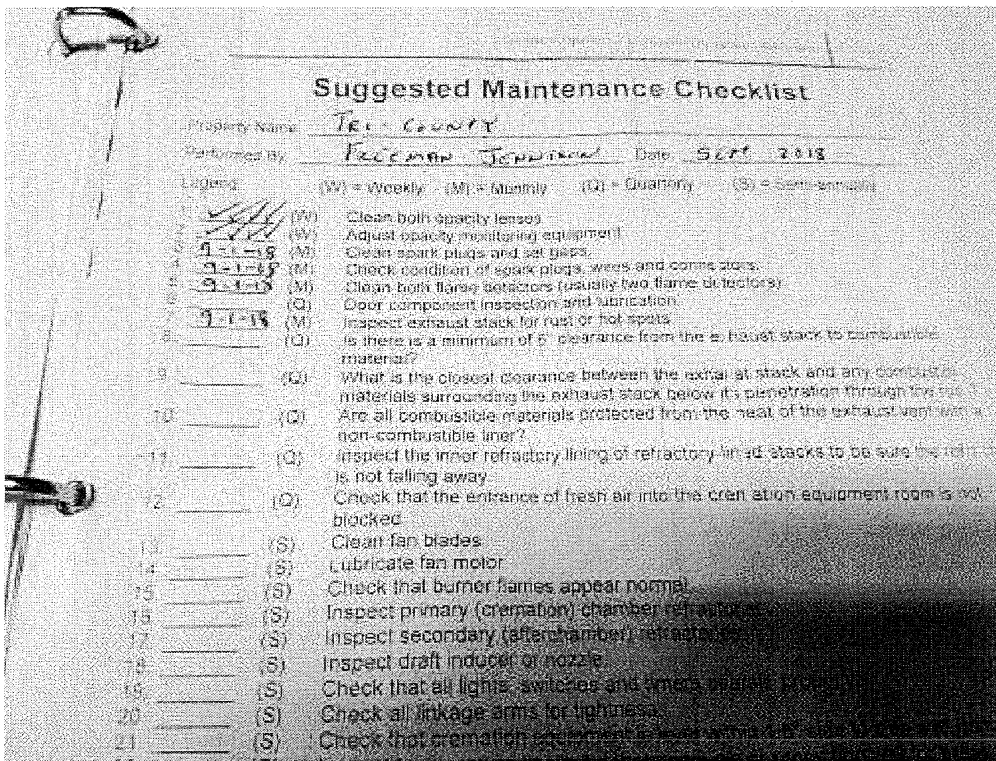 Suggested Maintenance Checklist
Property Name TRI-COUNTY
Performed By FREEMAN Date SEPT 2018
Legend (W) = Weekly (M) = Monthly (Q) = Quarterly (S) = Semi-annually
(W) Clean both opacity lenses
(W) Adjust opacity monitoring equipment
9-1-18 (M) Clean spark plugs and set gaps.
9-1-18 (M) Check condition of spark plugs, wires and connectors.
9-1-18 (M) Clean both flame detectors (usually two flame detectors)
(Q) Door component inspection and lubrication
9-1-18 (M) Inspect exhaust stack for rust or hot spots
8 (Q) Is there is a minimum of 6" clearance from the exhaust stack to combustible
material?
9 (Q) What is the closest clearance between the exhaust stack and any
materials surrounding the exhaust stack below its penetration through the
10 (Q) Are all combustible materials protected from the heat of the exhaust vent with a
non-combustible liner?
11 (Q) Inspect the inner refractory lining of refractory-lined stacks to be sure the
is not falling away.
12 (Q) Check that the entrance of fresh air into the cremation equipment room is not
blocked
13 (S) Clean fan blades
14 (S) Lubricate fan motor
15 (S) Check that burner flames appear normal.
16 (S) Inspect primary (cremation) chamber
17 (S) Inspect secondary (afterchamber)
18 (S) Inspect draft inducer or nozzle.
19 (S) Check that all lights, switches and timers
20 (S) Check all linkage arms for tightness.
21 (S) Check that cremation equipment